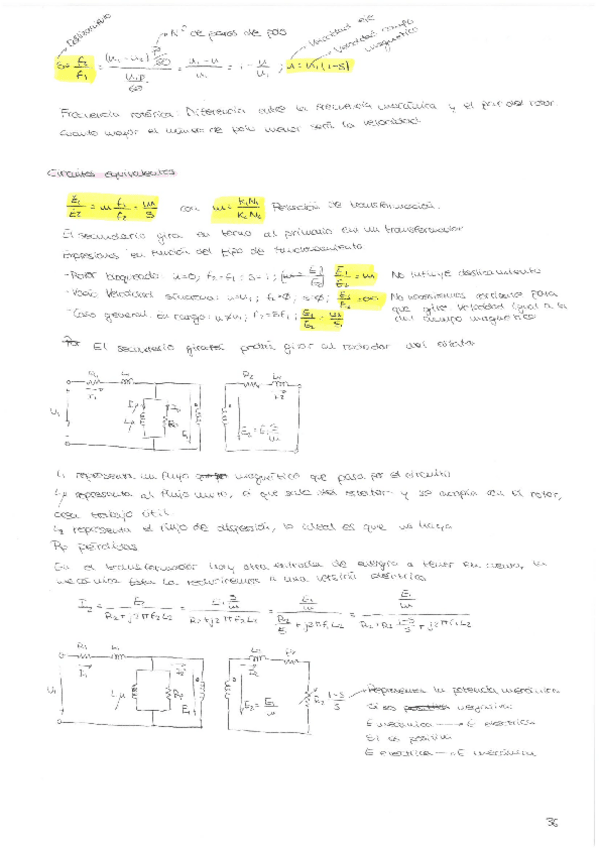 Deslizamiento
Nº de pares de polo
Velocidad eje
Velocidad campo magnético
S = f₂/f₁ = (n₁ - n₂) P/60 / n₁P/60 = n₁ - n / n₁ = 1 - n/n₁ ; n = n₁(1-S)
Frecuencia rotórica: Diferencia entre la frecuencia mecánica y el del rotor
Cuanto mayor el número de polos menor será la velocidad
Circuitos equivalentes
E₁/E₂ = m f₁/f₂ = m/s con m = K₁N₁/K₂N₂ Relación de transformación.
El secundario gira en torno al primario en un transformador
Expresiones en función del tipo de funcionamiento
-Rotor bloqueado: n=0; f₂=f₁; S=1; E₁/E₂ = m No influye deslizamiento
-Vacío Velocidad síncrona: n=n₁; f₂=0; s=0; E₁/E₂ = ∞ No necesitamos para
que gire velocidad igual a la
del campo magnético
-Caso general, en carga: n≠n₁; f₂=Sf₁; E₁/E₂ = m/s
El secundario podría girar al rededor del
R₁ L₁ I₁ U₁ Iμ Lμ E₁
R₂ L₂ I₂ E₂=E₁ S/m
L₁ representa un flujo magnético que pasa por el circuito
Lμ representa al flujo mutuo, el que sale del estator y se acopla en el rotor,
crea trabajo útil.
L₂ representa el flujo de dispersión, lo ideal es que no haya
pérdidas
En el transformador hay otra entrada de energía a tener en cuenta, la
mecánica. Esta la reduciremos a una versión eléctrica
I₂ = E₂ / R₂+j2πf₂L₂ = E₁ S/m / R₂+j2πf₂L₂ = E₁/m / R₂/S + j2πf₁L₂ = E₁/m / R₂+R₂ 1-S/S + j2πf₁L₂
R₁ L₁ I₁ U₁ Lμ E₁
L₂ R₂ E₂=E₁/m R₂ 1-S/S
Representa la potencia mecánica
Si es negativa:
E mecánica → E eléctrica
Si es positiva
E eléctrica → E mecánica
36